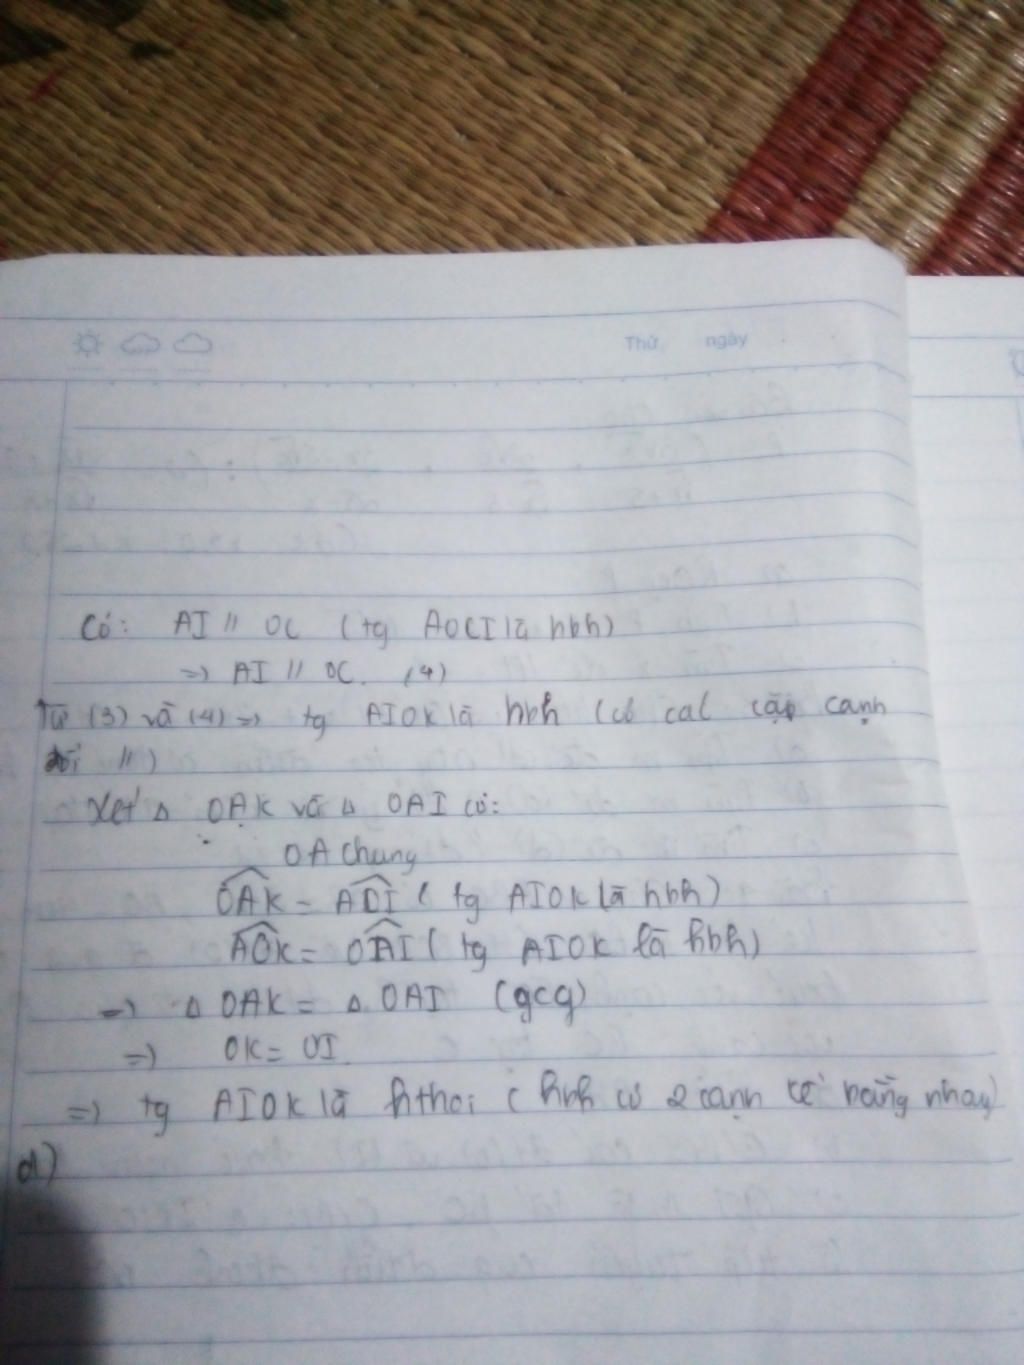 Thứ ngày
Có: AI // OC (tg AOCI là hbh)
=> AI // OC. (4)
Từ (3) và (4) => tg AIOK là hbh (có các cặp cạnh
đối //)
Xét Δ OAK và Δ OAI có:
OA chung
OAK = AOI ( tg AIOK là hbh)
AOK = OAI ( tg AIOK là hbh)
=> Δ OAK = Δ OAI (gcg)
=> OK = OI
=> tg AIOK là hthoi ( hbh có 2 cạnh kề bằng nhau)
d)